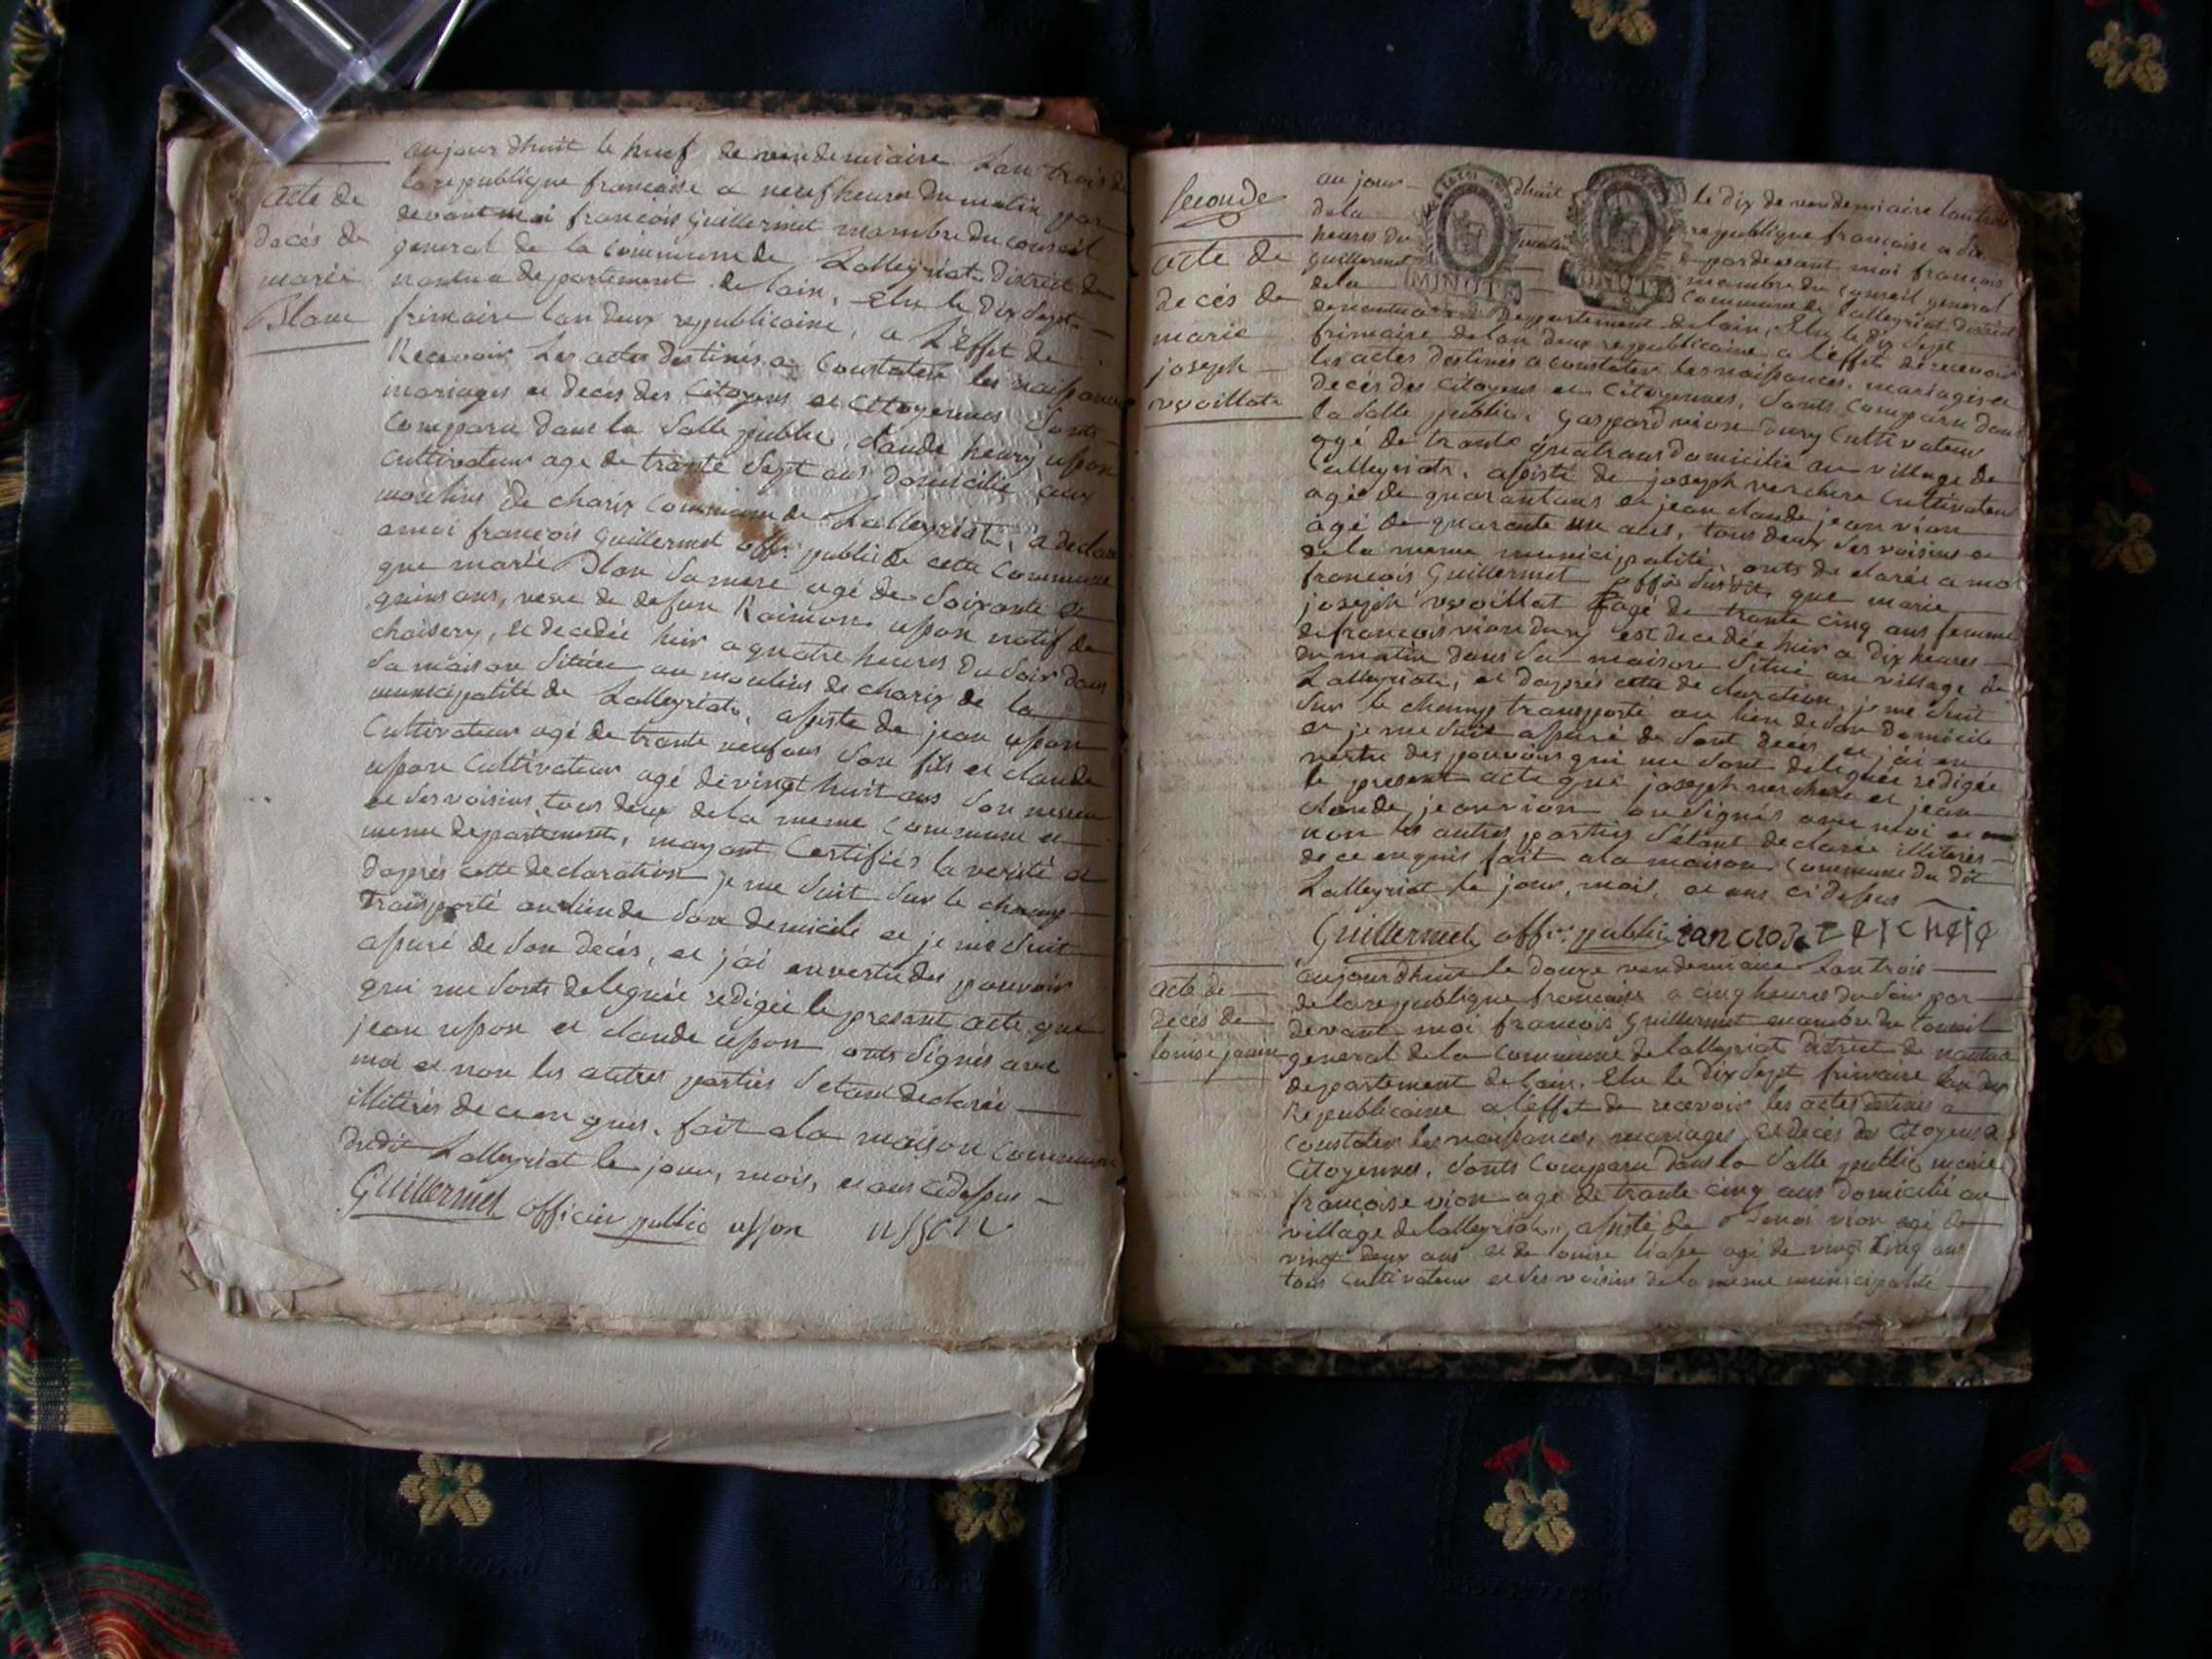 acte de
décés de
marie
Blanc
aujourdhuit le neuf de vendemiaire Lan trois de
la republique francaise a neuf heures du matin par
devant moi francois Guillermet mambre du conseil
general de la commune de Lalleyriat District de
nantua departement de lain, Elu le dix Sept
frimaire lan deux republicaine, a L'Effet de
Recevoir Les actes destinés a Constater les naissances
mariages et deces des Citoyens et Citoyennes Sonts
Comparu dans la Salle public, claude henry usson
cultivateur agé de trante Sept ans domicilié aux
moulins de charix Commune de Lalleyriat, a declaré
amoi francois Guillermet offr public de cette Commune
que marie Blan Sa mere agé de Soixante et
quins ans, veve de defun Raimon usson natif de
choisery, et decedée hier a quatre heures du Soir dans
Sa maison Située au moulins de charix de la
municipalité de Lalleyriat, assisté de jean usson
Cultivateur agé de trante neuf ans Son fils et claude
usson Cultivateur agé de vingt huit ans Son neveu
et Ses voisins tous deux de la meme Commune et
meme departement, mayant Certifiés la verité et
daprès cette declaration je me Suit Sur le champ
Transporté au lieu de Son domicile et je me Suit
assuré de Son decés, et j'ai en vertu des pouvoir
qui me Sonts deleguée redigée le present acte que
jean usson et claude usson onts Signés avec
moi et non les autres parties Setant declarée
illiterés de ce en quis. fait ala maison Commune
dudit Lalleyriat le jour, mois, et ans cidessus
Guillermet officier public usson usson
Seconde
acte de
decés de
marie
joseph
vuaillat
au jour dhuit le dix de vendemiaire lan trois
de la republique francaise a dix
heures du matin par devant moi francois
Guillermet mambre du Conseil general
de la Commune de lalleyriat District
MINUTE
denantua Departement de lain, Elu le dix Sept
frimaire de lan deux republicaine a l'effet de recevoir
les actes destinés a constater les naissances, mariages et
decés des Citoyens et Citoyennes, Sonts Comparu dans
la Salle public, Gaspard vion dury Cultivateur
agé de trante quatrans domicilié au village de
Lalleyriat, assisté de joseph verchere Cultivateur
agé de quarantans et jean claude jean vion
agé de quarante un ans, tous deux Ses voisins et
de la meme municipalité, onts declarée a moi
francois Guillermet offr Susdit, que marie
joseph vuaillat agé de trante cinq ans femme
de francois vion dury est decedée hier a dix heures
du matin dans Sa maison Situé au village de
Lalleyriat, et daprès cette declaration, je me Suit
Sur le champ transporté au lieu de Son domicile
et je me Suit assuré de Sont deces, et j'ai en
vertu des pouvoirs qui me Sont deleguée redigée
le present acte que joseph verchere et jean
claude jean vion on Signés avec moi et
non les autres partis S'étant declarée illiterés
de ce enquis fait ala maison Commune du dit
Lalleyriat le jour, mois, et ans ci dessus
Guillermet offr public
acte de
deces de
louise janin
aujourdhuit le douze vendemiaire Lan trois
de la republique francaise a cinq heures du Soir par
devant moi francois Guillermet mambre du Conseil
general de la Commune de lalleyriat District de nantua
departement de lain, Elu le dix Sept frimaire lan deux
Republicaine a l'effet de recevoir les actes destinés a
Constater les naissances, mariages, et deces des Citoyens et
Citoyennes, Sonts Comparu dans la Salle public marie
francoise vion agé de trante cinq ans domicilié au
village de lalleyriat, assisté de vion agé de
vingt deux ans et de louise agé de vingt cinq ans
tous Cultivateur et Ses voisins de la meme municipalité